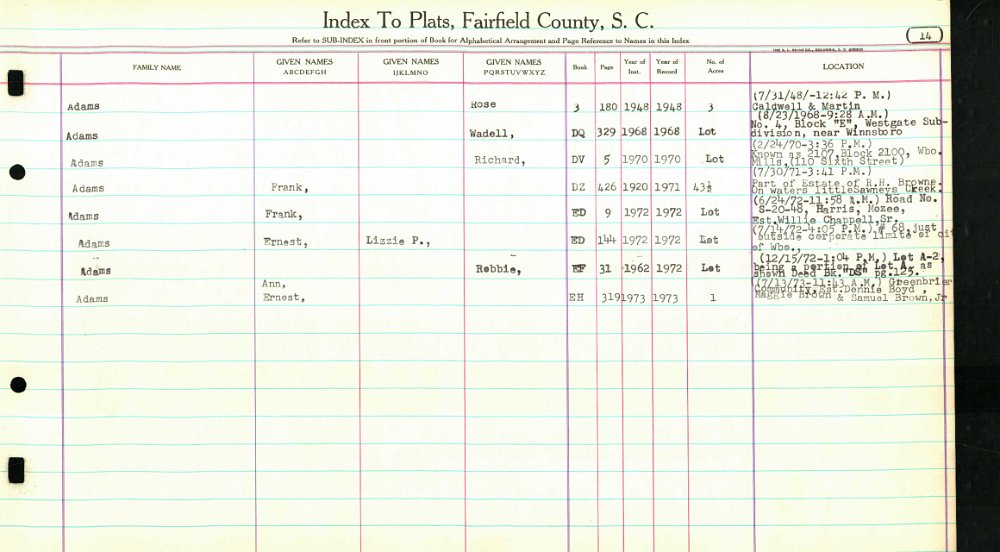 Index To Plats, Fairfield County, S. C.
Refer to SUB-INDEX in front portion of Book for Alphabetical Arrangement and Page Reference to Names in this Index
14
FAMILY NAME GIVEN NAMES ABCDEFGH GIVEN NAMES IJKLMNO GIVEN NAMES PQRSTUVWXYZ Book Page Year of Inst. Year of Record No. of Acres LOCATION
(7/31/48/-12:42 P. M.)
Adams Rose 3 180 1948 1948 3 Caldwell & Martin
(8/23/1968-9:28 A.M.)
Adams Wadell, DQ 329 1968 1968 Lot No. 4, Block "E", Westgate Sub-
division, near Winnsboro
(2/24/70-3:36 P.M.)
Adams Richard, DV 5 1970 1970 Lot Known as 2107,Block 2100, Wbo.
Mills,(110 Sixth Street)
(7/30/71-3:41 P.M.)
Adams Frank, DZ 426 1920 1971 43½ Part of Estate of R.H. Browne.
On waters littleSawneys Creek.
(6/24/72-11:58 A.M.) Road No.
Adams Frank, ED 9 1972 1972 Lot S-20-48, Harris, Mozee,
Est.Willie Chappell,Sr.
(7/14/72-4:05 P.M.) # 68,just
Adams Ernest, Lizzie P., ED 144 1972 1972 Lot outside corporate limits of cit
of Wbo.,
(12/15/72-1:04 P.M,) Lot A-2,
Adams Robbie, EF 31 1962 1972 Lot being a portion of Lot A, as
shown Deed Bk."DS" pg.125.
Ann, (7/13/73-11:43 A.M.) Greenbrier
Adams Ernest, EH 319 1973 1973 1 Community,Est.Dennie Boyd ,
Maggie Brown & Samuel Brown,Jr